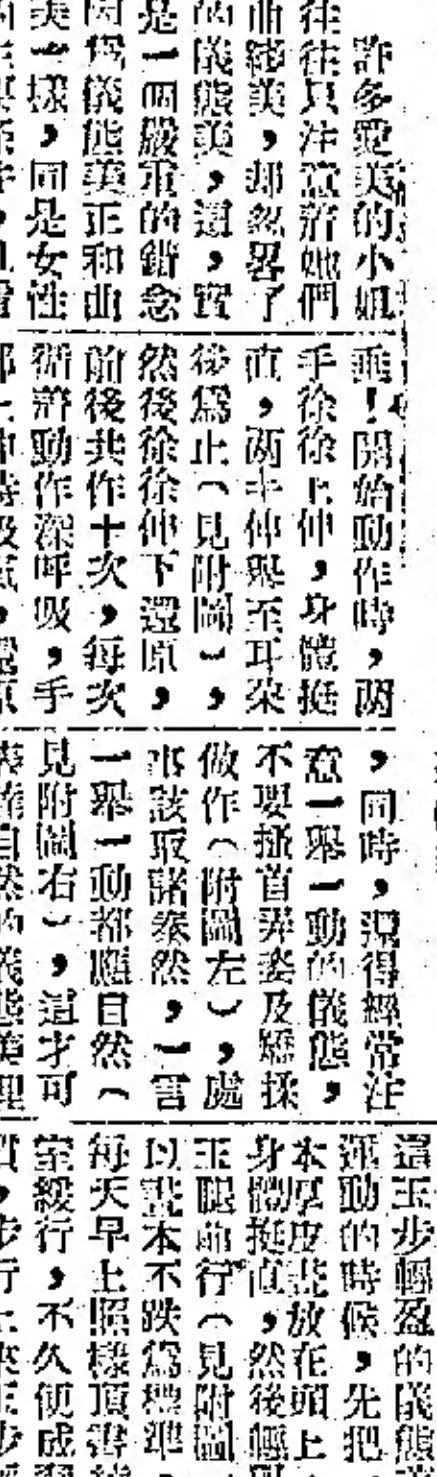 許多愛美的小姐
往往只注意著她們
曲綫美，却忽畧了
的儀態美，這，實
是一個嚴重的錯念
因爲儀態美正和曲
美一樣，同是女性
垂！開始動作時，兩
手徐徐上伸，身體挺
直，兩手伸舉至耳朶
後爲止（見附圖），
然後徐徐伸下還原，
前後共作十次，每次
循着動作深呼吸，手
，同時，還得經常注
意一舉一動的儀態，
不要搔首弄姿及矯揉
做作（附圖左），處
事該取諸泰然，一言
一舉一動都應自然（
見附圖右），這才可
這玉步輕盈的儀態
運動的時候，先把
本厚皮書放在頭上
身體挺直，然後輕
玉腿前行（見附圖
以書本不跌爲標準
每天早上照樣頂書
室緩行，不久便成